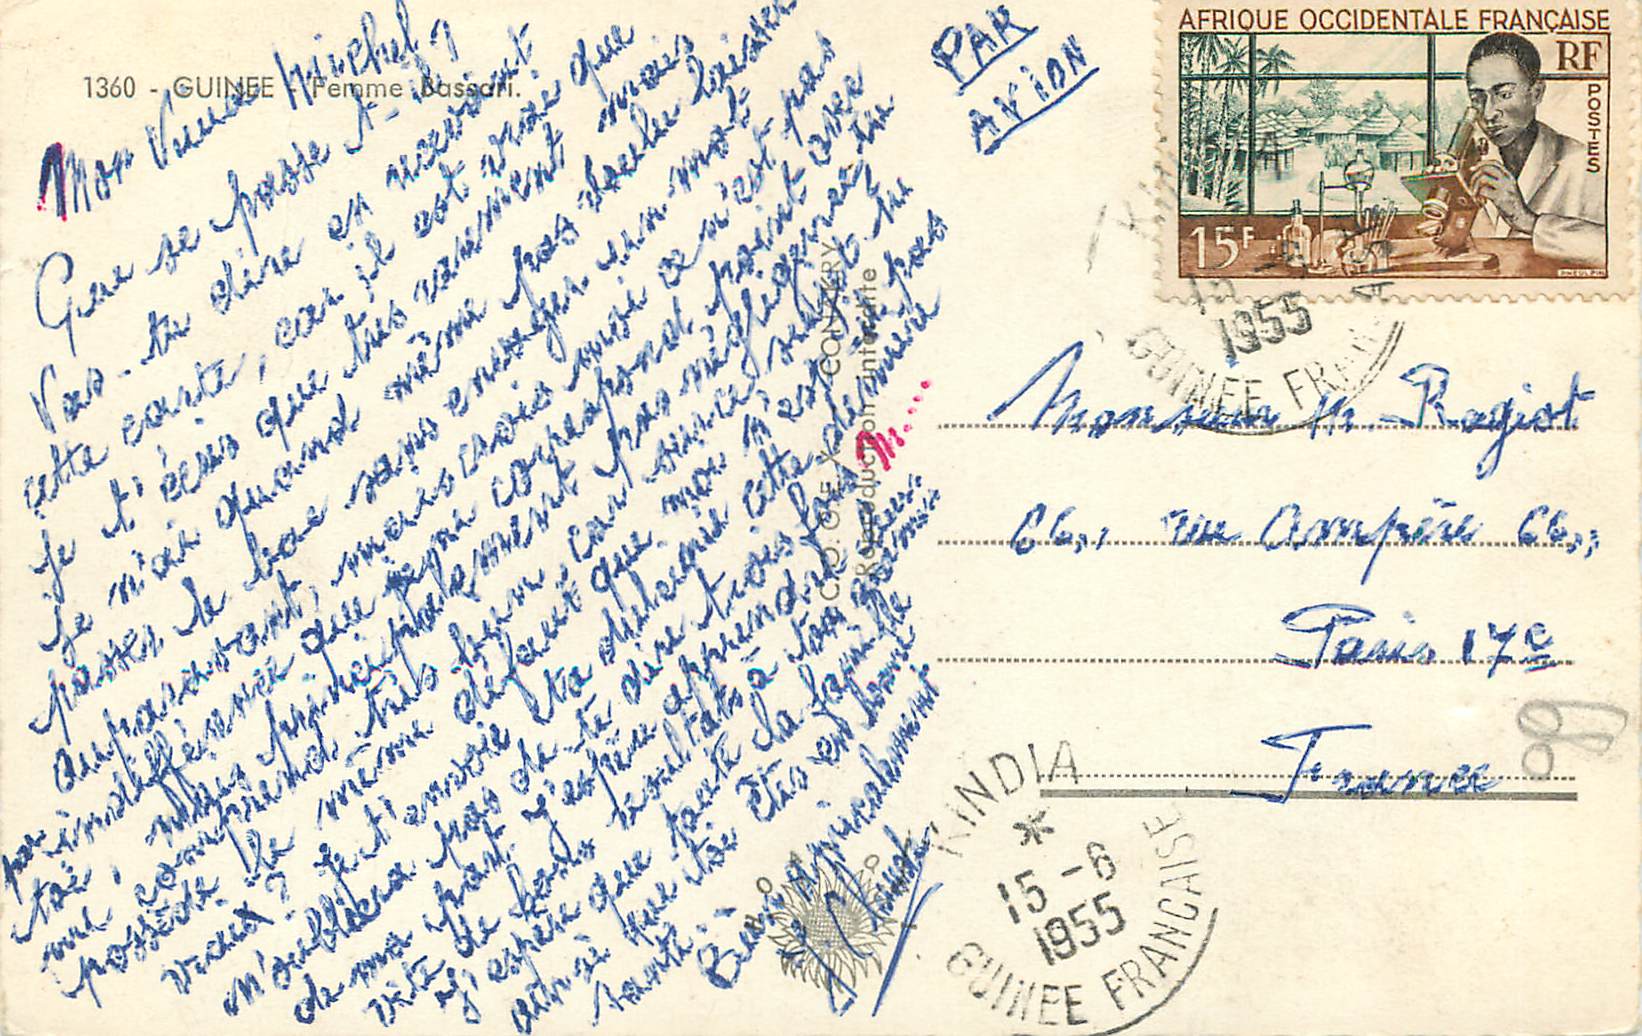 1360 - GUINEE - Femme Bassari.
Mon Vieux Michel,
Que se passe t-il ?
Vas-tu dire en recevant
cette carte, car il est vrai que
je t'écris que très rarement mais
je n'ai quand même pas voulu laisser
passer le bac sans envoyer un mot
auparavant, mais crois moi ce n'est pas
par indifférence que je ne correspond point avec
toi, mais principalement par négligence tu
me comprend très bien, car puisque tu
possède le même défaut que moi n'est-ce pas
vieux ? Je t'envoie
m'oubliera pas de te dire trois fois M.....
de ma part. J'espère apprendre
vite de bons résultats à ton
J'espère que toute la famille
ainsi que toi êtes en bonne
santé.
Bien amicalement
Claude
C O G E X CONAKRY
Reproduction interdite
PAR
AVION
AFRIQUE OCCIDENTALE FRANÇAISE
RF
POSTES
15F
1955
GUINEE FRANCAISE
Monsieur M. Ragiot
66, rue Ampère 66,
Paris 17e
France
99
KINDIA
15-6
1955
GUINEE FRANCAISE